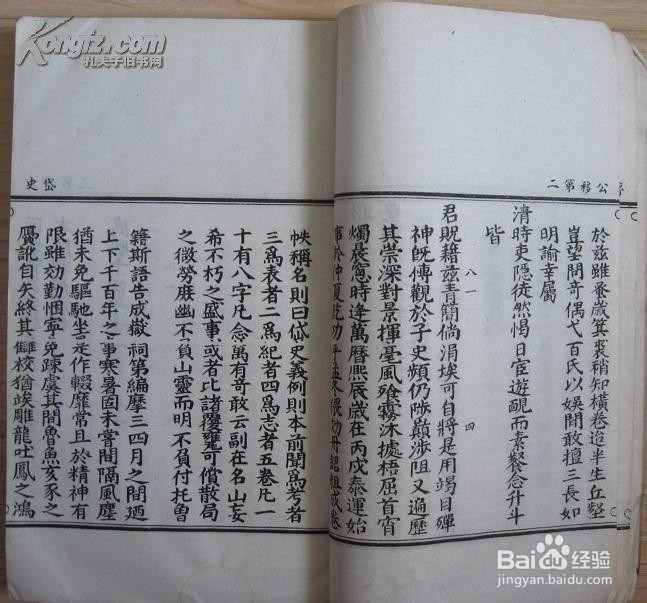 Kongfz.com
孔夫子旧书网
公移第二
於茲雖蚤歲箕裘稍知橫卷迨半生丘壑
豈望閒奇偶弋百氏以娛閒敢擅三長如
明諭幸屬
清時吏隱徒然愒日宦遊靦而素餐念升斗
皆
君貺籍茲青簡倘涓埃可自將是用竭目殫
神旣傳觀於子史頻仍陟巔涉阻又遍歷
其崇深對景揮毫風飱霧沐據梧屈首宵
燭晨窻時逢萬曆熙辰歲在丙戌泰運始
事於仲夏訖功乎孟冬猥効冊記粗成卷
八一
四
岱史
帙稱名則曰岱史義例則本前聞爲考者
三爲表者二爲紀者四爲志者五卷凡一
十有八字凡念萬有奇敢云副在名山妄
希不朽之盛事或者比諸覆甕可償散局
之微勞庶幽不負山靈而明不負付托魯
籍斯語告成嶽祠第編摩三四月之間廼
上下千百年之事寒暑固未嘗間隔風塵
猶未免驅馳坐定作輟靡常且於精神有
限雖効勤悃寧免踈虞其間魯魚亥豕之
贗訛自矢終其讎校猶竢雕龍吐鳳之鴻
Baidu 经验
jingyan.baidu.com